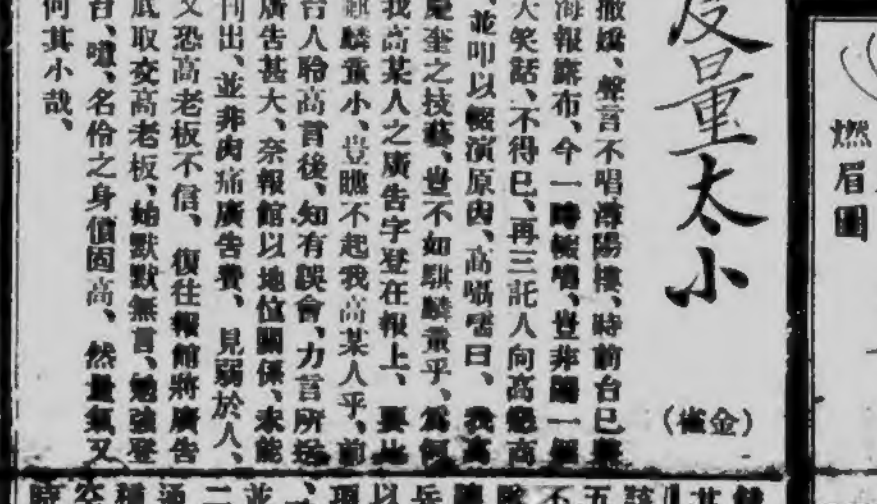 度量太小
（金雀）
撤嬌、聲言不唱潯陽樓、時前台已
海報露布、今一時輟唱、豈非鬧一個
大笑話、不得已、再三託人向高懇商
、並叩以輟演原因、高囁嚅曰、我高
慶奎之技藝、豈不如騏麟童乎、爲何
我高某人之廣告字登在報上、要比
麒麟童小、豈瞧不起我高某人乎、前
台人聆高言後、知有誤會、力言所送
廣告甚大、奈報館以地位關係、未能
刊出、並非肉痛廣告費、見弱於人、
又恐高老板不信、復往報館將廣告
底取交高老板、始默默無言、勉強登
台、噫、名伶之身價固高、然量氣又
何其小哉、
燃眉圖